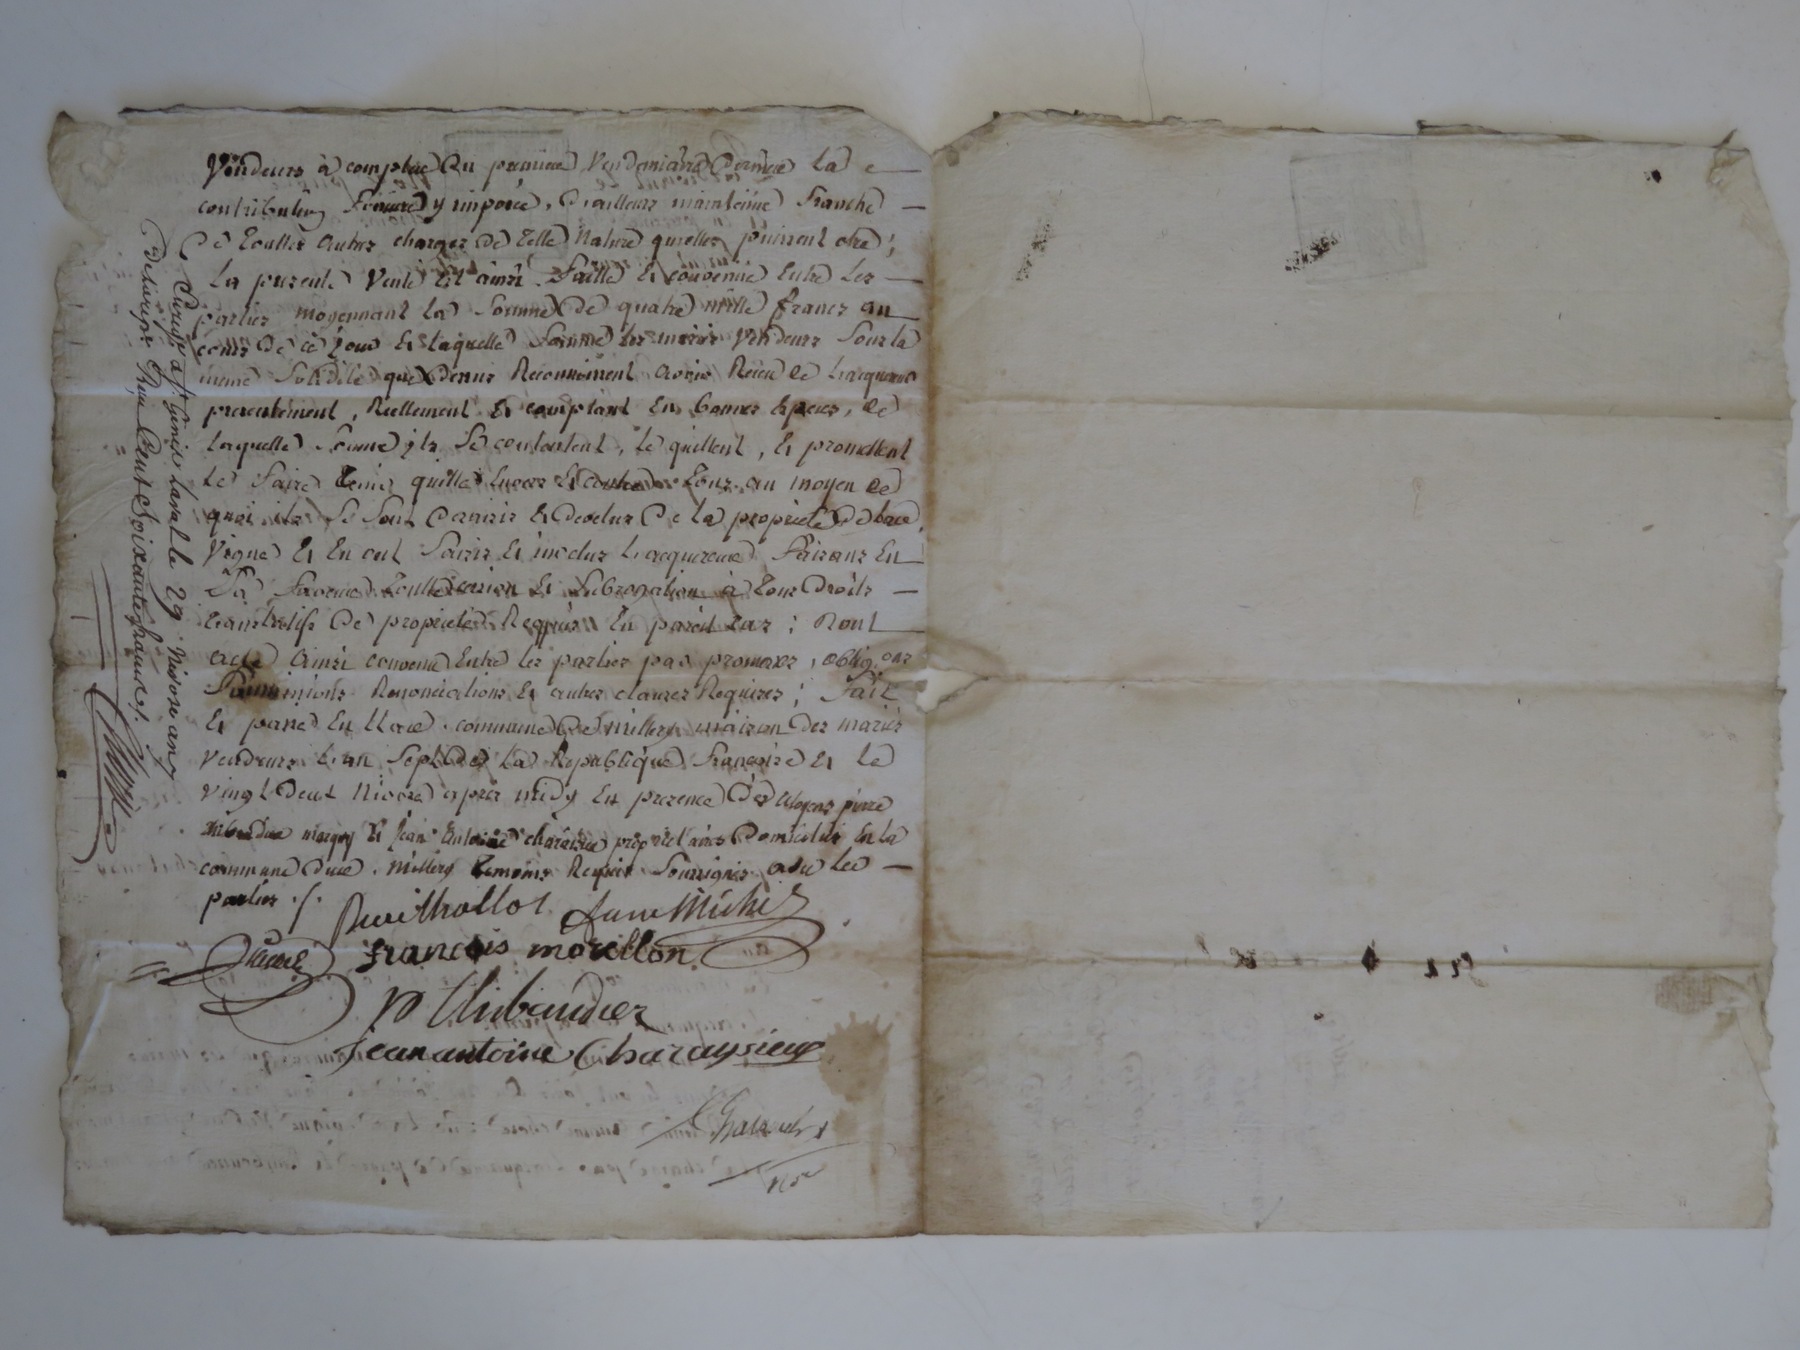 Vendeurs à compter du premier Vendemiaire dernier la
contribution fonciere y imposée, d'ailleurs maintenue franche
de touttes autres charges de telle nature quelles puissent etre;
La presente vente est ainsi faitte et convenue entre les
parties moyennant la somme de quatre mille francs au
cours de ce jour et laquelle somme les mariés vendeurs sous la
meme solidité que dessus Reconnoissent avoir Recue de l'acquereur
presentement, Reellement et comptant en bonnes especes, de
laquelle somme ils se contentent, le quittent, et promettent
le faire tenir quitte envers et contre tous. au moyen de
quoi ils se sont demis et devetus de la proprieté de ladite
Vigne et en ont saisis et investus l'acquereur faisans en
sa faveur toutte cession et subrogation à tous droits
translatifs de proprieté Requis en pareil cas; Dont
acte ainsi convenu entre les parties par promesses, obligons
soumissions Renonciations et autres clauses Requises; fait
et passé en la ditte commune de millery maison des mariés
vendeurs l'an sept de la Republique françoise et le
vingt deux Nivose après midy en presence des citoyens pierre
thibaudier et jean antoine charaysieux proprietaires Domiciliés en la
commune dudit millery temoins Requis soussignés avec les
parties ./.
Berthollot jane Michel
françois morillon
p thibaudier
Jean antoine Charaysieux
Enregistré a St Genis laval le 29 nivose an 7
Reçu cent soixante francs